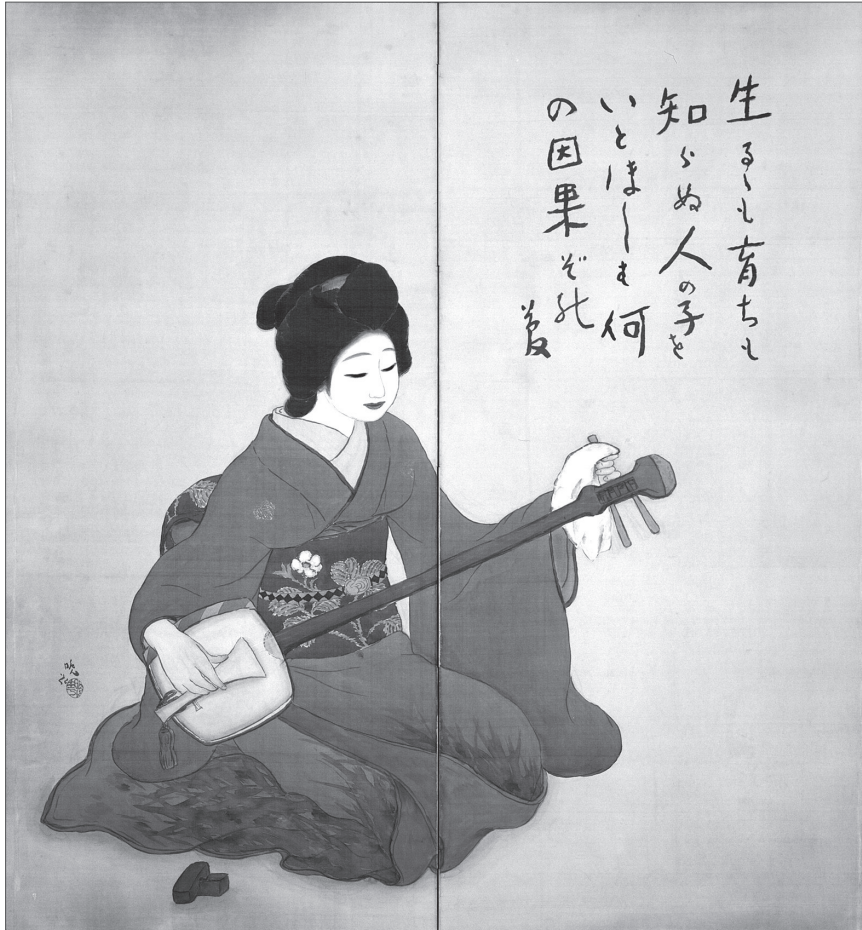 生るゝも育ちも
知らぬ人の子を
いとほしも何
の因果ぞ能
晩花